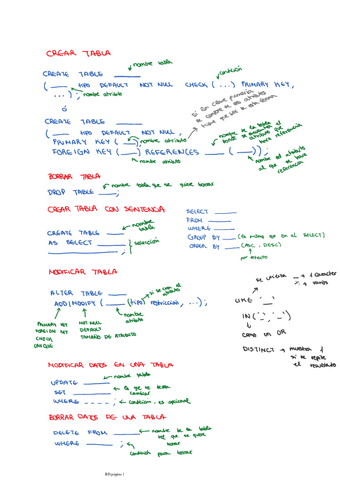 CREAR TABLA
nombre tabla
CREATE TABLE ______
condición
( ___ tipo DEFAULT NOT NULL CHECK (...) PRIMARY KEY,
...); nombre atributo
ó
CREATE TABLE ______
( ___ tipo DEFAULT NOT NULL,
PRIMARY KEY ( __ )
FOREIGN KEY ( __ ) REFERENCES ____ ( __ ));
nombre atributo
si son clave primaria
se compone de dos atributos
hay que usar esta forma
nombre de la tabla
donde se encuentra
atributo que
hace referencia
Nombre del atributo
al que se hace
referencia
BORRAR TABLA
nombre tabla que se quiere borrar
DROP TABLE ____;
CREAR TABLA CON SENTENCIA
nombre
tabla
CREATE TABLE ____
AS SELECT ____ selección
____;
SELECT ____
FROM ____
WHERE ____
GROUP BY __ (lo mismo que en el SELECT)
ORDER BY __ (ASC, DESC)
por defecto
MODIFICAR TABLA
ALTER TABLE ____
si se crea el
atributo
ADD|MODIFY ( ___ (tipo) restricción, ...);
nombre
atributo
PRIMARY KEY
FOREIGN KEY
CHECK
UNIQUE
NOT NULL
DEFAULT
TAMAÑO DE ATRIBUTO
_ → 1 carácter
% → varios
LIKE '__'
IN ('_', '_')
como un OR
DISTINCT → muestra 1
si se repite
el resultado
MODIFICAR DATOS EN UNA TABLA
nombre tabla
UPDATE ____
lo que se desea
cambiar
SET ____
WHERE ____; condición, es opcional
BORRAR DATOS DE UNA TABLA
nombre de la tabla
DELETE FROM ____
WHERE ____;
borrar
condición para borrar